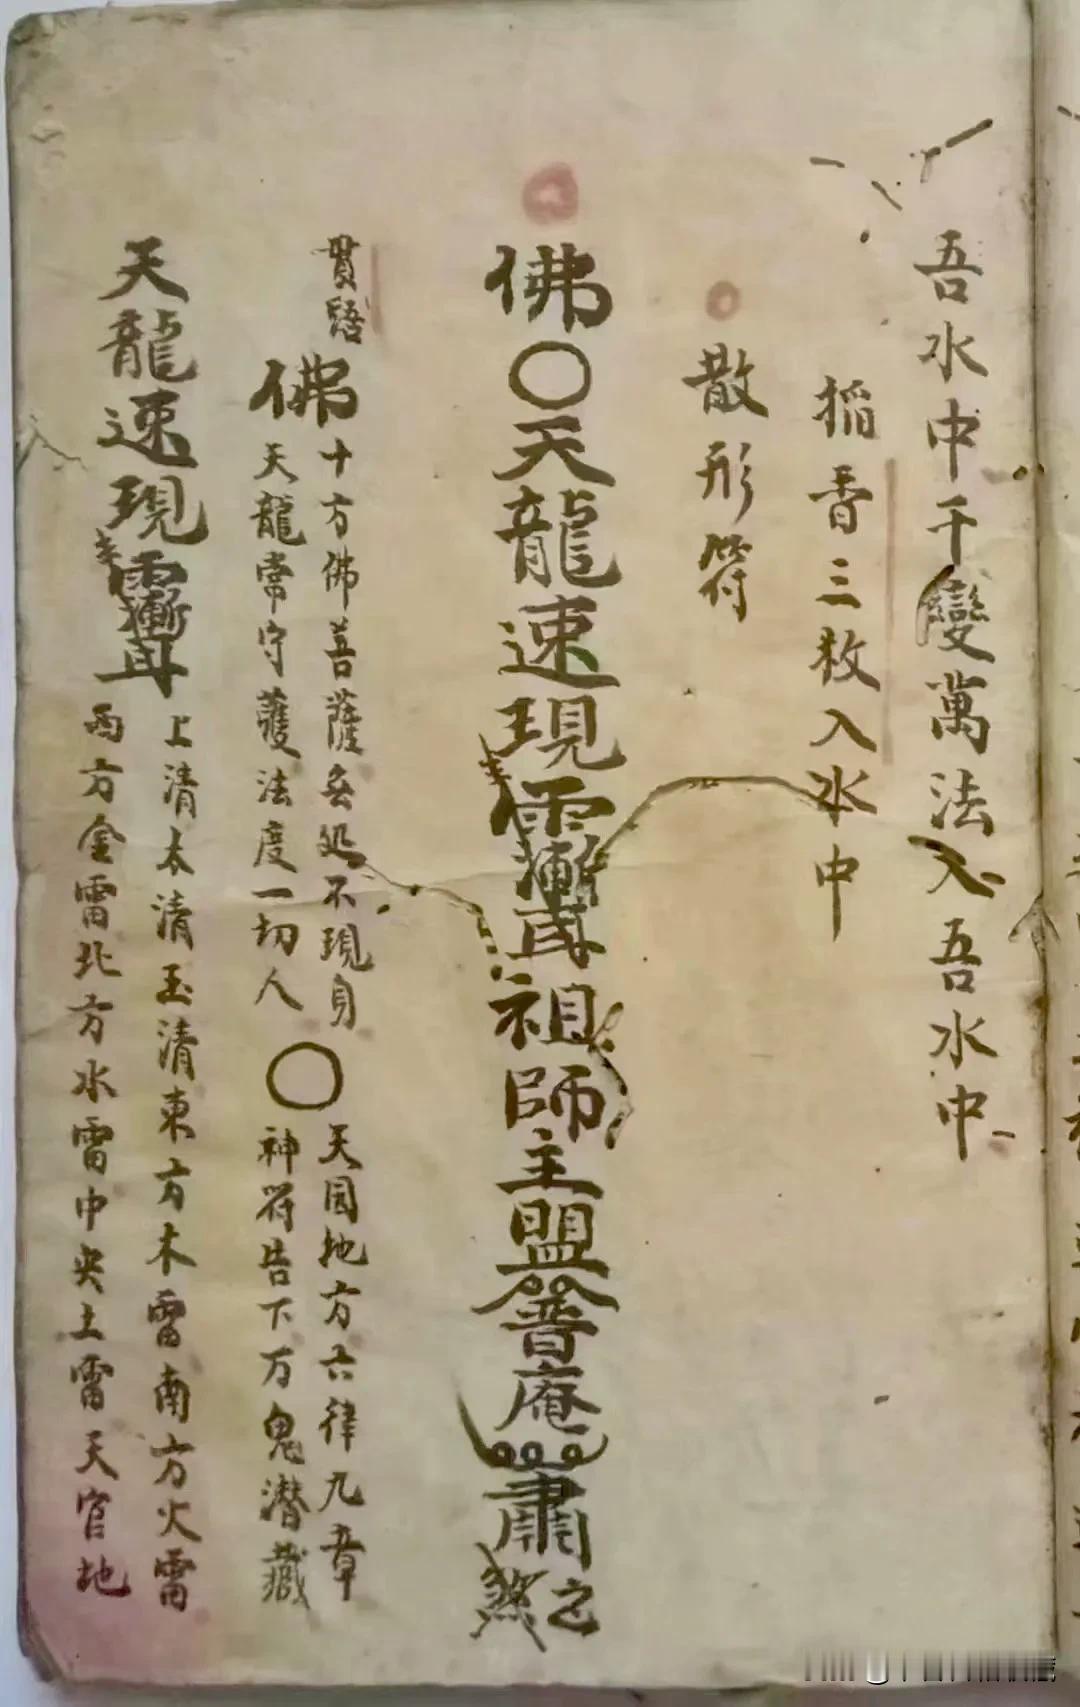 吾水中千變萬法入吾水中
稲香三敉入水中
散形符
佛〇天龍速現祖師主盟普庵肅煞之
貫
佛
十方佛菩薩無処不現身
天龍常守護法度一切人
〇
天圆地方六律九章
神符告下万鬼潜藏
天龍速現
上清太清玉清東方木雷南方火雷
西方金雷北方水雷中央土雷天官地